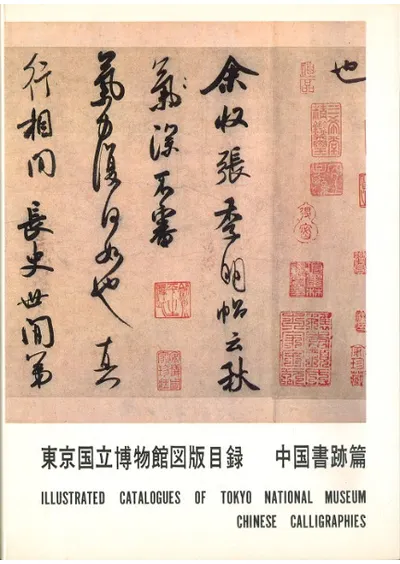 也
余收張季明帖云秋
氣深不審
氣力復何如也真
行相間長史世間第
東京国立博物館図版目録 中国書跡篇
ILLUSTRATED CATALOGUES OF TOKYO NATIONAL MUSEUM
CHINESE CALLIGRAPHIES